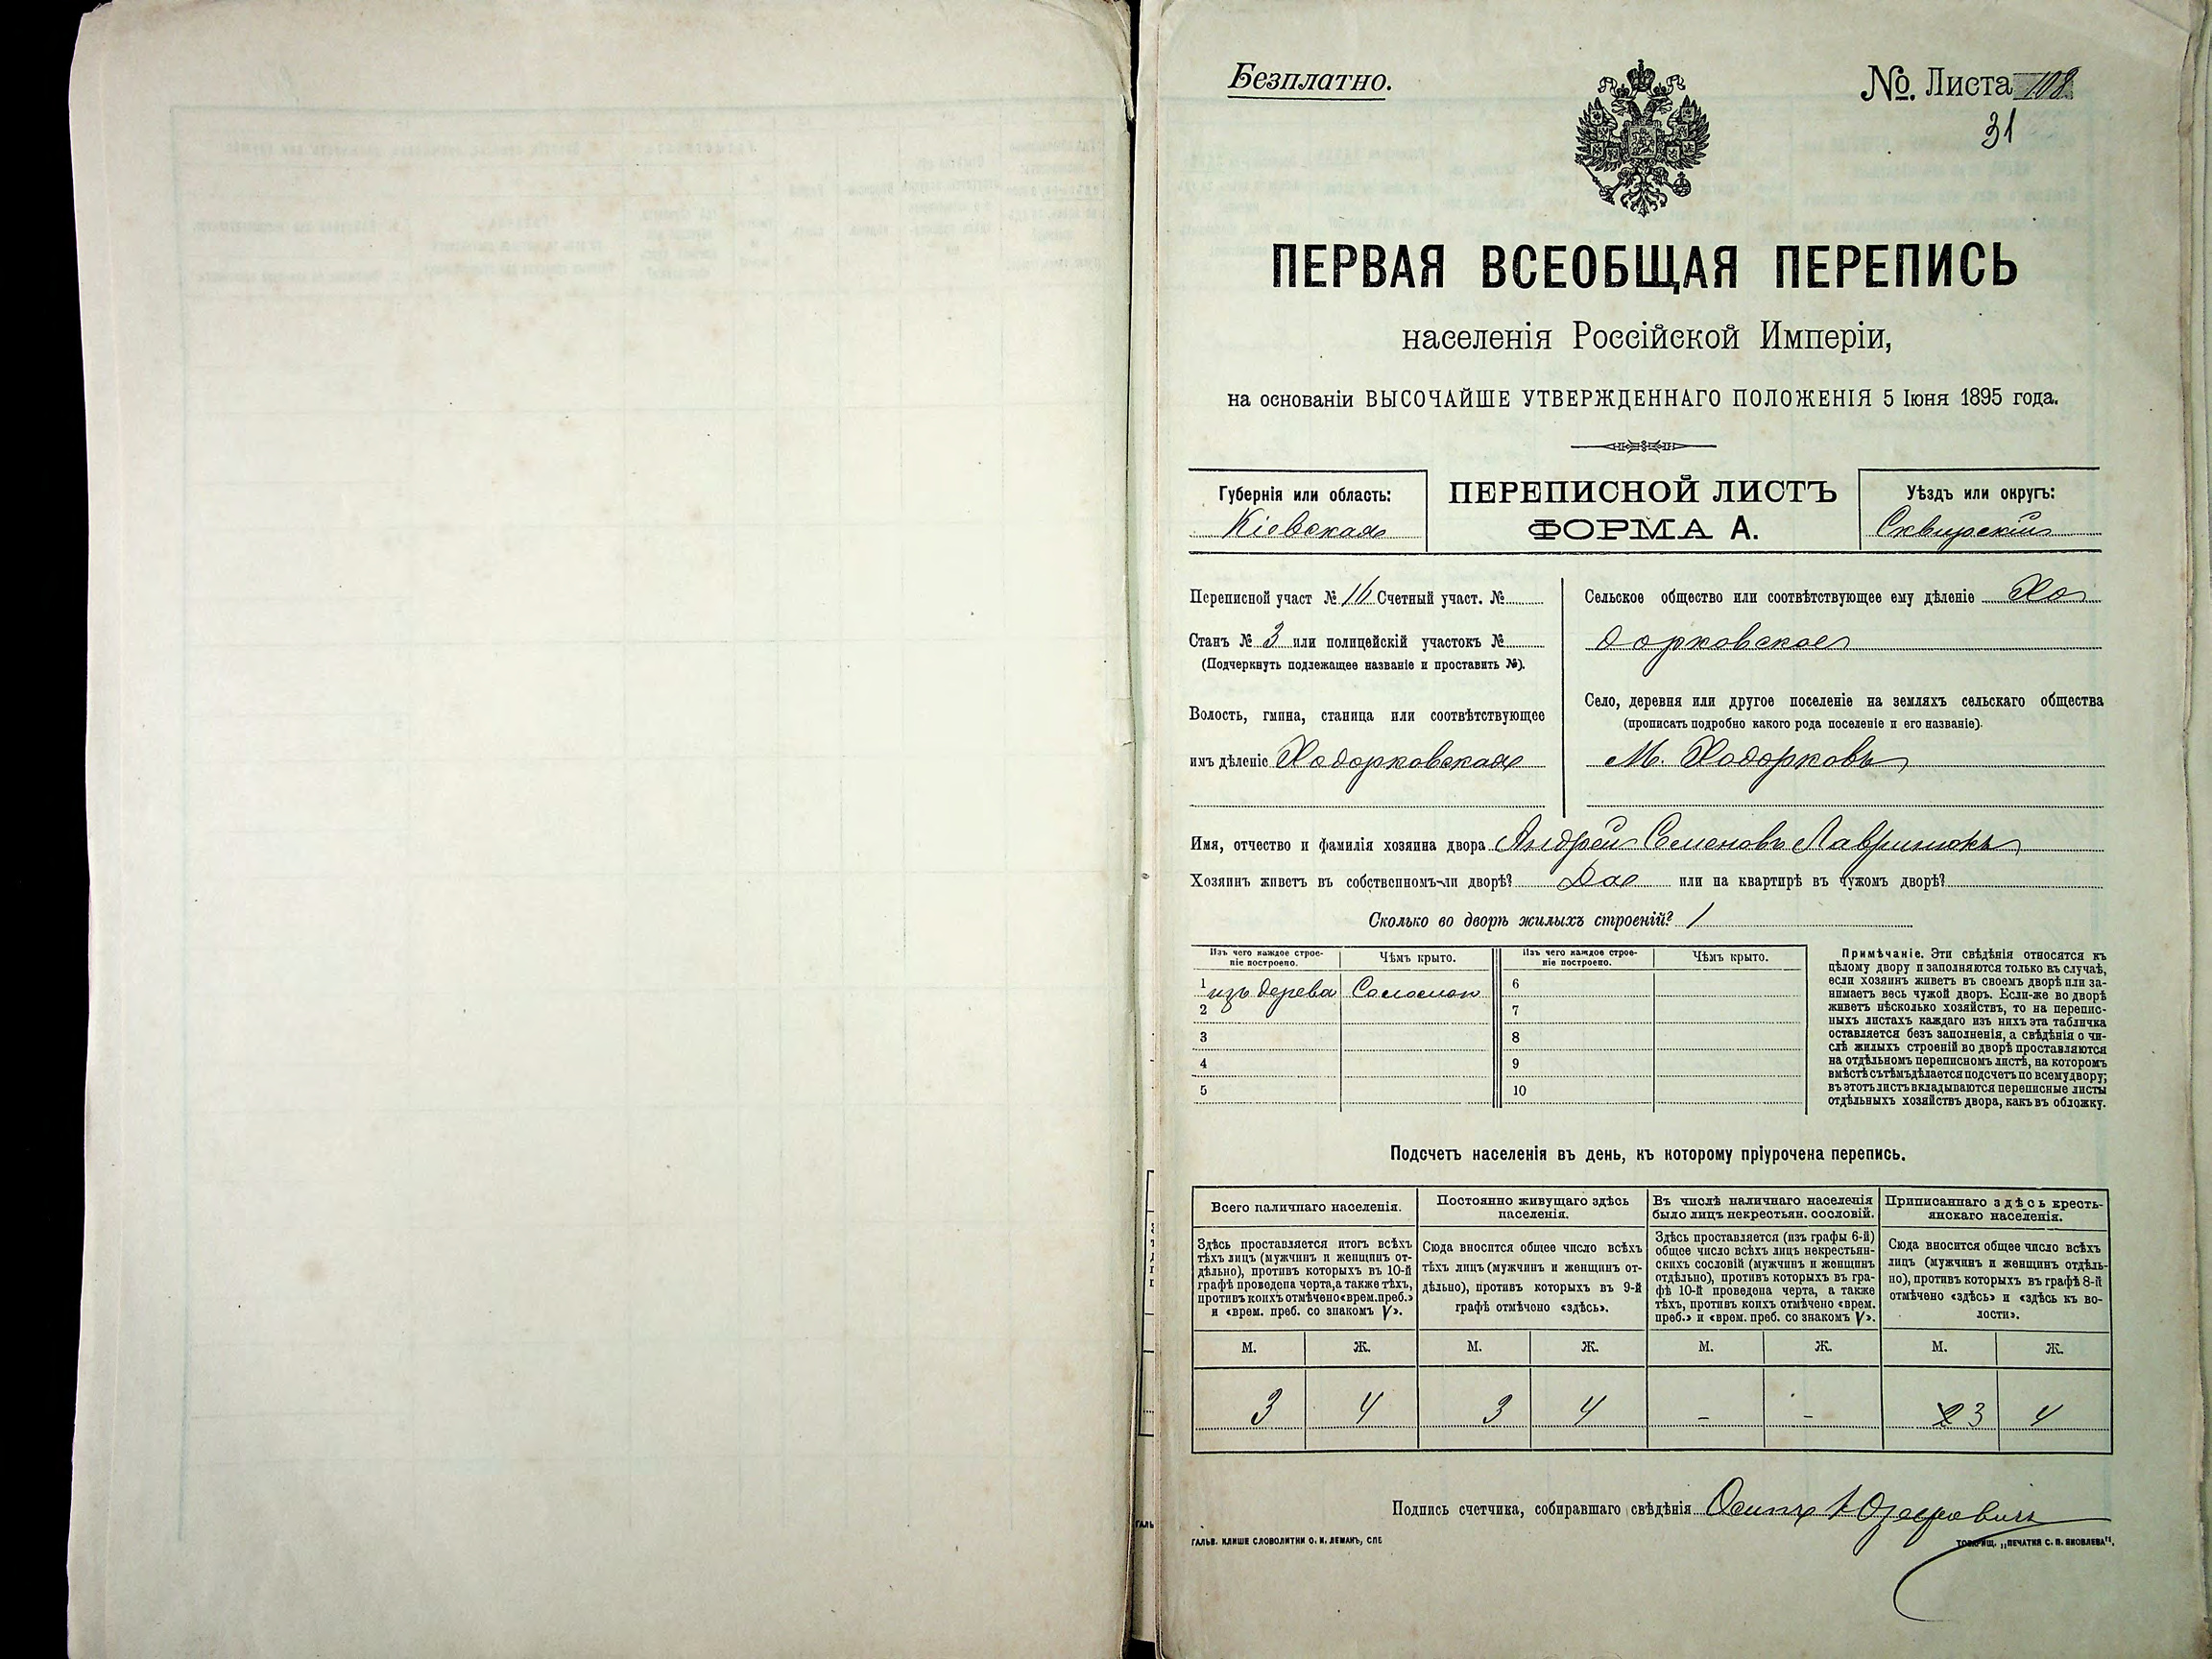 Безплатно.
№ Листа 108
31
ПЕРВАЯ ВСЕОБЩАЯ ПЕРЕПИСЬ
населенія Россійской Имперіи,
на основаніи ВЫСОЧАЙШЕ УТВЕРЖДЕННАГО ПОЛОЖЕНІЯ 5 Іюня 1895 года.
Губернія или область:
Кіевская
ПЕРЕПИСНОЙ ЛИСТЪ
ФОРМА А.
Уѣздъ или округъ:
Сквирскій
Переписной участ № Счетный участ. №
Станъ № 3 или полицейскій участокъ №
(Подчеркнуть подлежащее названіе и проставить №).
Волость, гмина, станица или соотвѣтствующее
имъ дѣленіе Ходорковская
Сельское общество или соотвѣтствующее ему дѣленіе Хо
дорковское
Село, деревня или другое поселеніе на земляхъ сельскаго общества
(прописать подробно какого рода поселеніе и его названіе).
М. Ходорковъ
Имя, отчество и фамилія хозяина двора Андрей Семеновъ Лавринюкъ
Хозяинъ живетъ въ собственномъ-ли дворѣ? Да или на квартирѣ въ чужомъ дворѣ?
Сколько во дворѣ жилыхъ строеній? 1
Изъ чего каждое строе-
ніе построено.
Чѣмъ крыто.
Изъ чего каждое строе-
ніе построено.
Чѣмъ крыто.
1 изъ дерева Соломой 6
2 7
3 8
4 9
5 10
Примѣчаніе. Эти свѣдѣнія относятся къ
цѣлому двору и заполняются только въ случаѣ,
если хозяинъ живетъ въ своемъ дворѣ или за-
нимаетъ весь чужой дворъ. Если-же во дворѣ
живетъ нѣсколько хозяйствъ, то на перепис-
ныхъ листахъ каждаго изъ нихъ эта табличка
оставляется безъ заполненія, а свѣдѣнія о чи-
слѣ жилыхъ строеній во дворѣ проставляются
на отдѣльномъ переписномъ листѣ, на которомъ
вмѣстѣ съ тѣмъ дѣлается подсчетъ по всему двору;
въ этотъ листъ вкладываются переписные листы
отдѣльныхъ хозяйствъ двора, какъ въ обложку.
Подсчетъ населенія въ день, къ которому пріурочена перепись.
Всего наличнаго населенія.
Здѣсь проставляется итогъ всѣхъ
тѣхъ лицъ (мужчинъ и женщинъ от-
дѣльно), противъ которыхъ въ 10-й
графѣ проведена черта, а также тѣхъ,
противъ коихъ отмѣчено «врем. преб.»
и «врем. преб. со знакомъ V».
Постоянно живущаго здѣсь
населенія.
Сюда вносится общее число всѣхъ
тѣхъ лицъ (мужчинъ и женщинъ от-
дѣльно), противъ которыхъ въ 9-й
графѣ отмѣчено «здѣсь».
Въ числѣ наличнаго населенія
было лицъ некрестьян. сословій.
Здѣсь проставляется (изъ графы 6-й)
общее число всѣхъ лицъ некрестьян-
скихъ сословій (мужчинъ и женщинъ
отдѣльно), противъ которыхъ въ гра-
фѣ 10-й проведена черта, а также
тѣхъ, противъ коихъ отмѣчено «врем.
преб.» и «врем. преб. со знакомъ V».
Приписаннаго здѣсь кресть-
янскаго населенія.
Сюда вносится общее число всѣхъ
лицъ (мужчинъ и женщинъ отдѣль-
но), противъ которыхъ въ графѣ 8-й
отмѣчено «здѣсь» и «здѣсь къ во-
лости».
М. Ж. М. Ж. М. Ж. М. Ж.
3 4 3 4 - - 3 4
Подпись счетчика, собиравшаго свѣдѣнія Осипъ Юзефовичъ
ГАЛЬВ. КЛИШЕ СЛОВОЛИТНИ О. И. ЛЕМАНЪ, СПБ
ТОВАРИЩ. „ПЕЧАТНЯ С. П. ЯКОВЛЕВА".